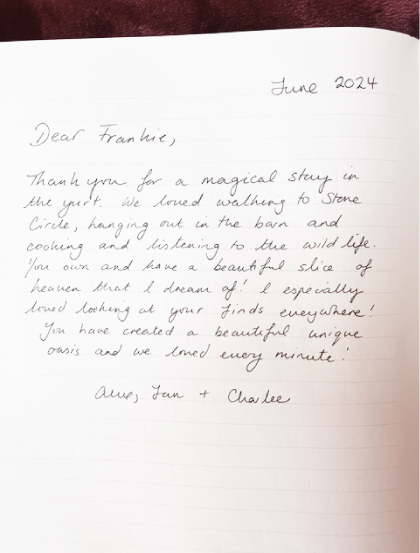 June 2024
Dear Frankie,
Thank you for a magical stay in
the yurt. We loved walking to Stone
Circle, hanging out in the barn and
cooking and listening to the wild life.
You own and have a beautiful slice of
heaven that I dream of! I especially
loved looking at your finds everywhere!
You have created a beautiful unique
oasis and we loved every minute!
+ Charlee